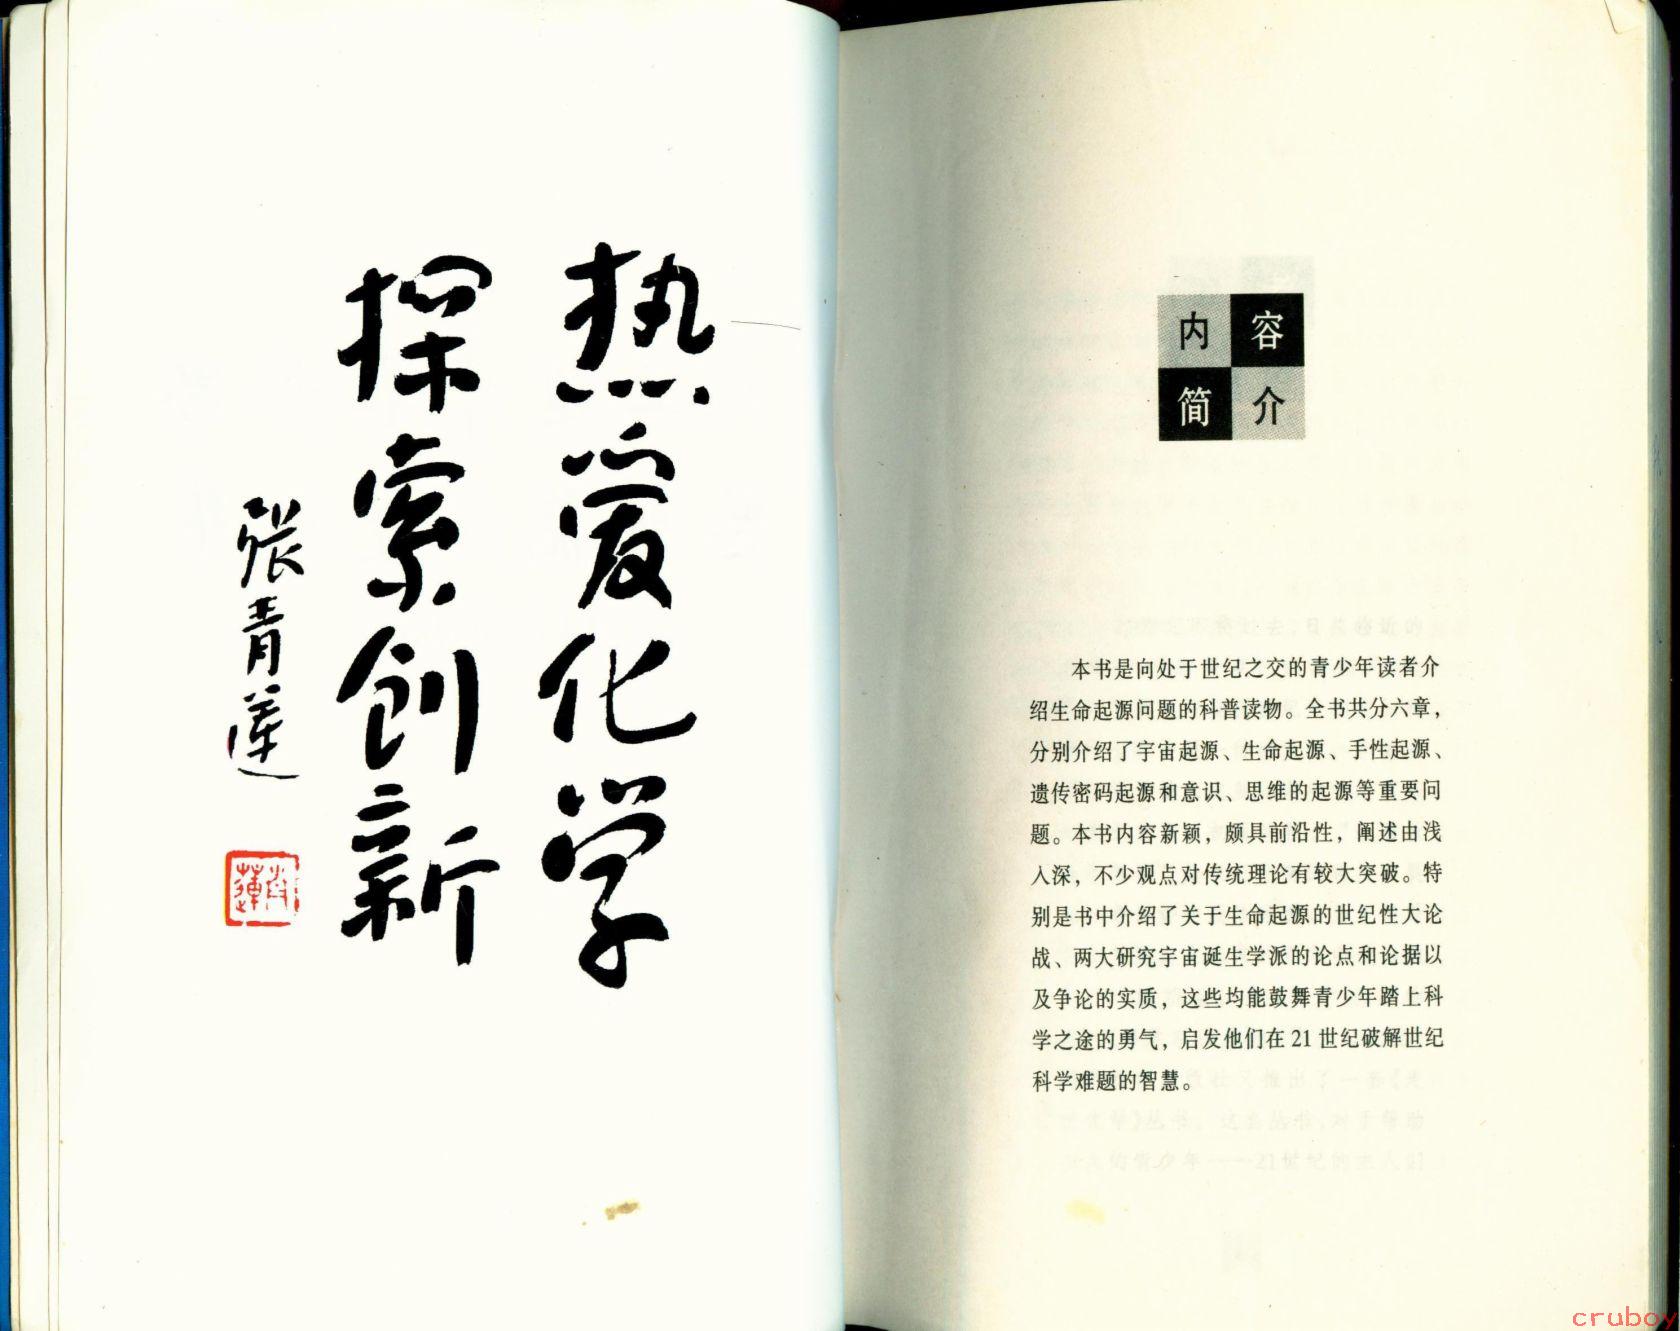 热爱化学
探索创新
张青莲
青莲
内容
简介
本书是向处于世纪之交的青少年读者介
绍生命起源问题的科普读物。全书共分六章，
分别介绍了宇宙起源、生命起源、手性起源、
遗传密码起源和意识、思维的起源等重要问
题。本书内容新颖，颇具前沿性，阐述由浅
入深，不少观点对传统理论有较大突破。特
别是书中介绍了关于生命起源的世纪性大论
战、两大研究宇宙诞生学派的论点和论据以
及争论的实质，这些均能鼓舞青少年踏上科
学之途的勇气，启发他们在21世纪破解世纪
科学难题的智慧。
cruboy